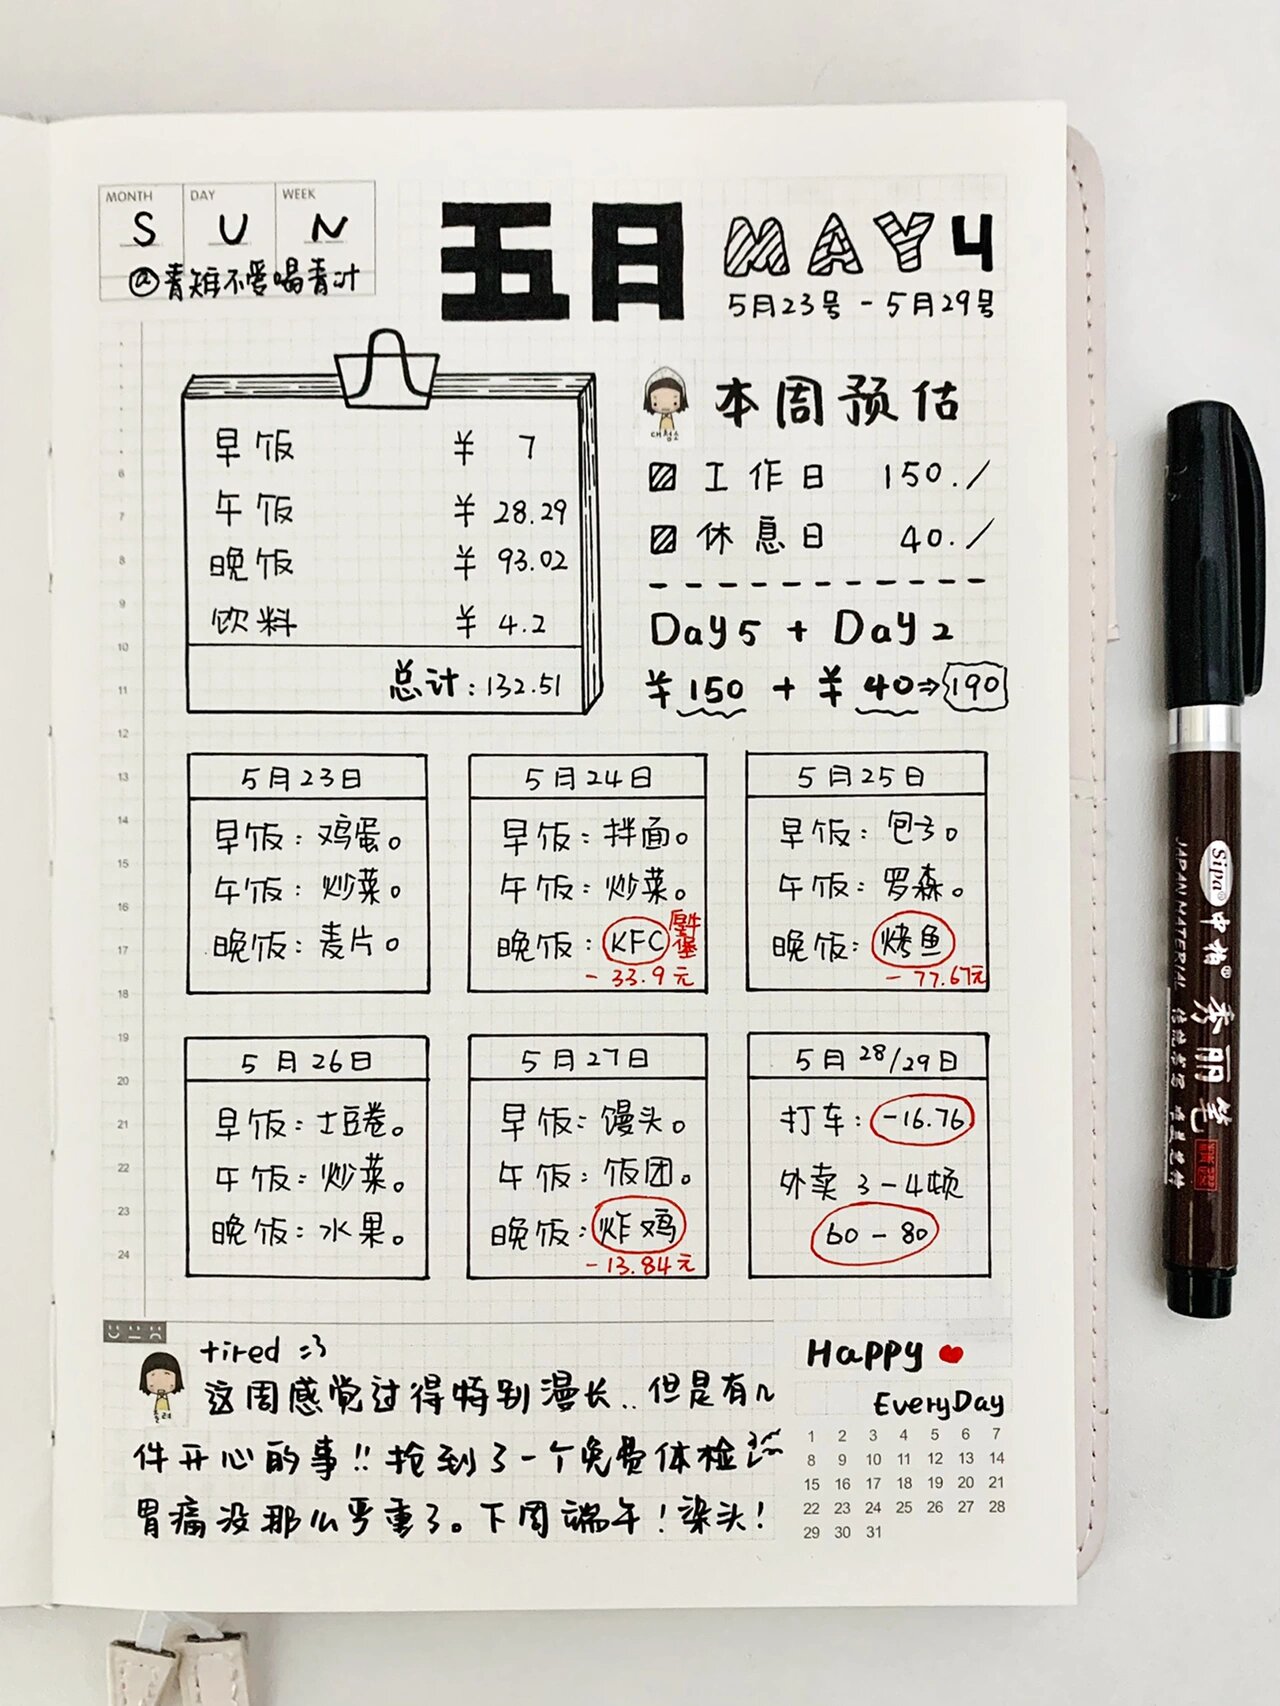 MONTH DAY WEEK
S U N
@青雉不爱喝青汁
五月 MAY 4
5月23号 - 5月29号
早饭 ¥ 7
午饭 ¥ 28.29
晚饭 ¥ 93.02
饮料 ¥ 4.2
总计:132.51
대청소
本周预估
工作日 150./
休息日 40./
Day5 + Day2
¥150 + ¥40⇒190
6
7
8
9
10
11
12
13
14
15
16
17
18
19
20
21
22
23
24
5月23日
早饭:鸡蛋。
午饭:炒菜。
晚饭:麦片。
5月24日
早饭:拌面。
午饭:炒菜。
晚饭:KFC 厚牛堡
-33.9元
5月25日
早饭:包子。
午饭:罗森。
晚饭:烤鱼
-77.67元
5月26日
早饭:土豆卷。
午饭:炒菜。
晚饭:水果。
5月27日
早饭:馒头。
午饭:饭团。
晚饭:炸鸡
-13.84元
5月28/29日
打车:-16.76
外卖3-4顿
60-80
tired :3
这周感觉过得特别漫长..但是有几
件开心的事!!抢到了一个免费体检
胃痛没那么严重了。下周端午!染头!
Happy ♥
EveryDay
1 2 3 4 5 6 7
8 9 10 11 12 13 14
15 16 17 18 19 20 21
22 23 24 25 26 27 28
29 30 31
Sipa® 中柏® 秀丽笔
JAPAN MATERIAL